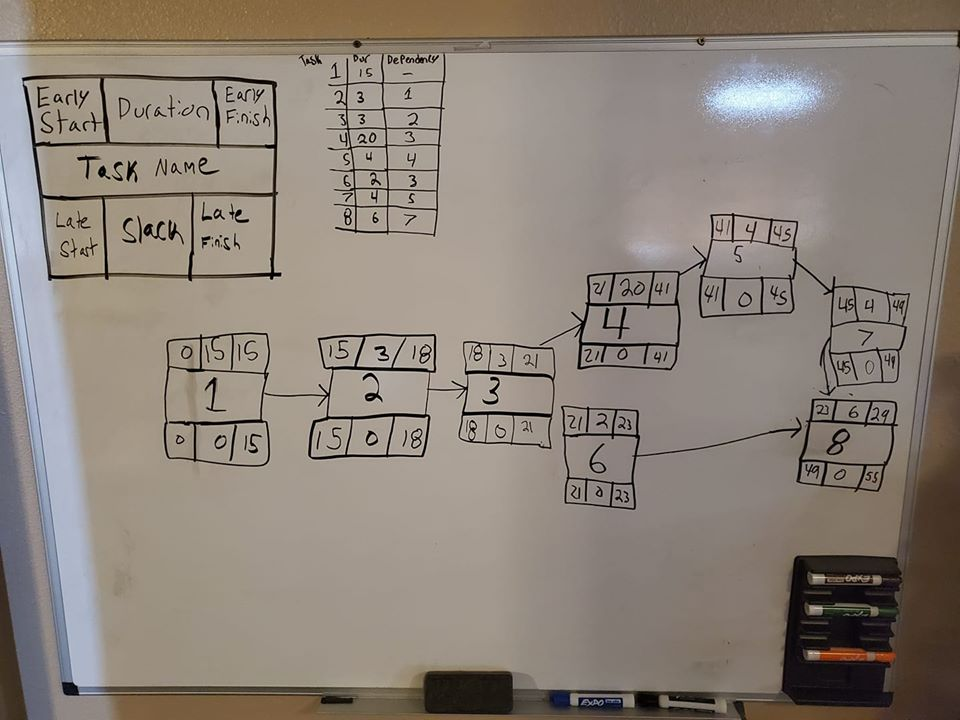 Early Start Duration Early Finish
Task Name
Late Start Slack Late Finish
Task Dur Dependency
1 15 –
2 3 1
3 3 2
4 20 3
5 4 4
6 2 3
7 4 5
8 6 7
0 15 15
1
0 0 15
15 3 18
2
15 0 18
18 3 21
3
18 0 21
21 20 41
4
21 0 41
41 4 45
5
41 0 45
45 4 49
7
45 0 49
21 2 23
6
21 0 23
23 6 29
8
49 0 55
EXPO
EXPO